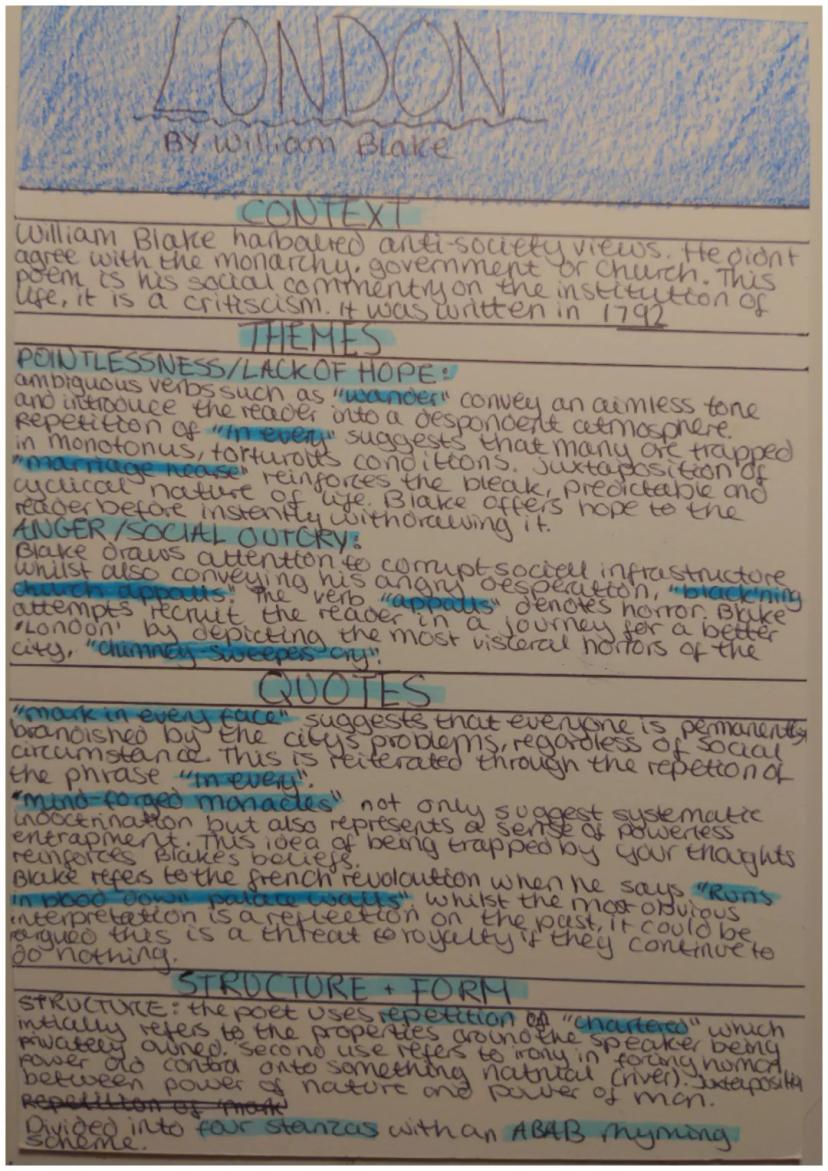 LONDON
BY William Blake
CONTEXT
William Blake harboured anti-society views. He didnt
agree with the monarchy, government or church. This
poem is his social commentry on the institution of
life, it is a critiscism. It was written in 1792
THEMES
POINTLESSNESS/LACK OF HOPE:
ambiguous verbs such as "wander" convey an aimless tone
and introduce the reader into a despondent atmosphere.
Repetition of "In every" suggests that many are trapped
in monotonus, torturous conditions. Juxtaposition of
"marriage hearse" reinforces the bleak, predictable and
cyclical nature of life. Blake offers hope to the
reader before instantly withdrawing it.
ANGER/SOCIAL OUTCRY:
Blake draws attention to corrupt social infrastructure
whilst also conveying his angry desperation, "black'ning
church appalls" The verb "appalls" denotes horror. Blake
attempts recruit the reader in a journey for a better
'London' by depicting the most visceral horrors of the
city, "chimney sweepers cry".
QUOTES
"mark in every face" suggests that everyone is permanently
brandished by the citys problems, regardless of social
circumstance. This is reiterated through the repetion of
the phrase "In every".
"mind-forged manacles" not only suggest systematic
indoctrination but also represents a sense of powerless
entrapment. This idea of being trapped by your thoughts
reinforces Blakes beliefs.
Blake refers to the french revoloution when he says "Runs
in blood down palace walls", whilst the most obvious
interpretation is a reflection on the past, it could be
argued this is a threat to royalty if they continue to
do nothing.
STRUCTURE + FORM
STRUCTURE: the poet uses repetition of "chartered" which
intially refers to the properties around the speaker being
privately owned. Second use refers to irony in forcing human
power and control onto something natural (river). Juxtaposition
between power of nature and power of man.
Repetition of "mark
Divided into four stanzas with an ABAB rhyming
scheme.